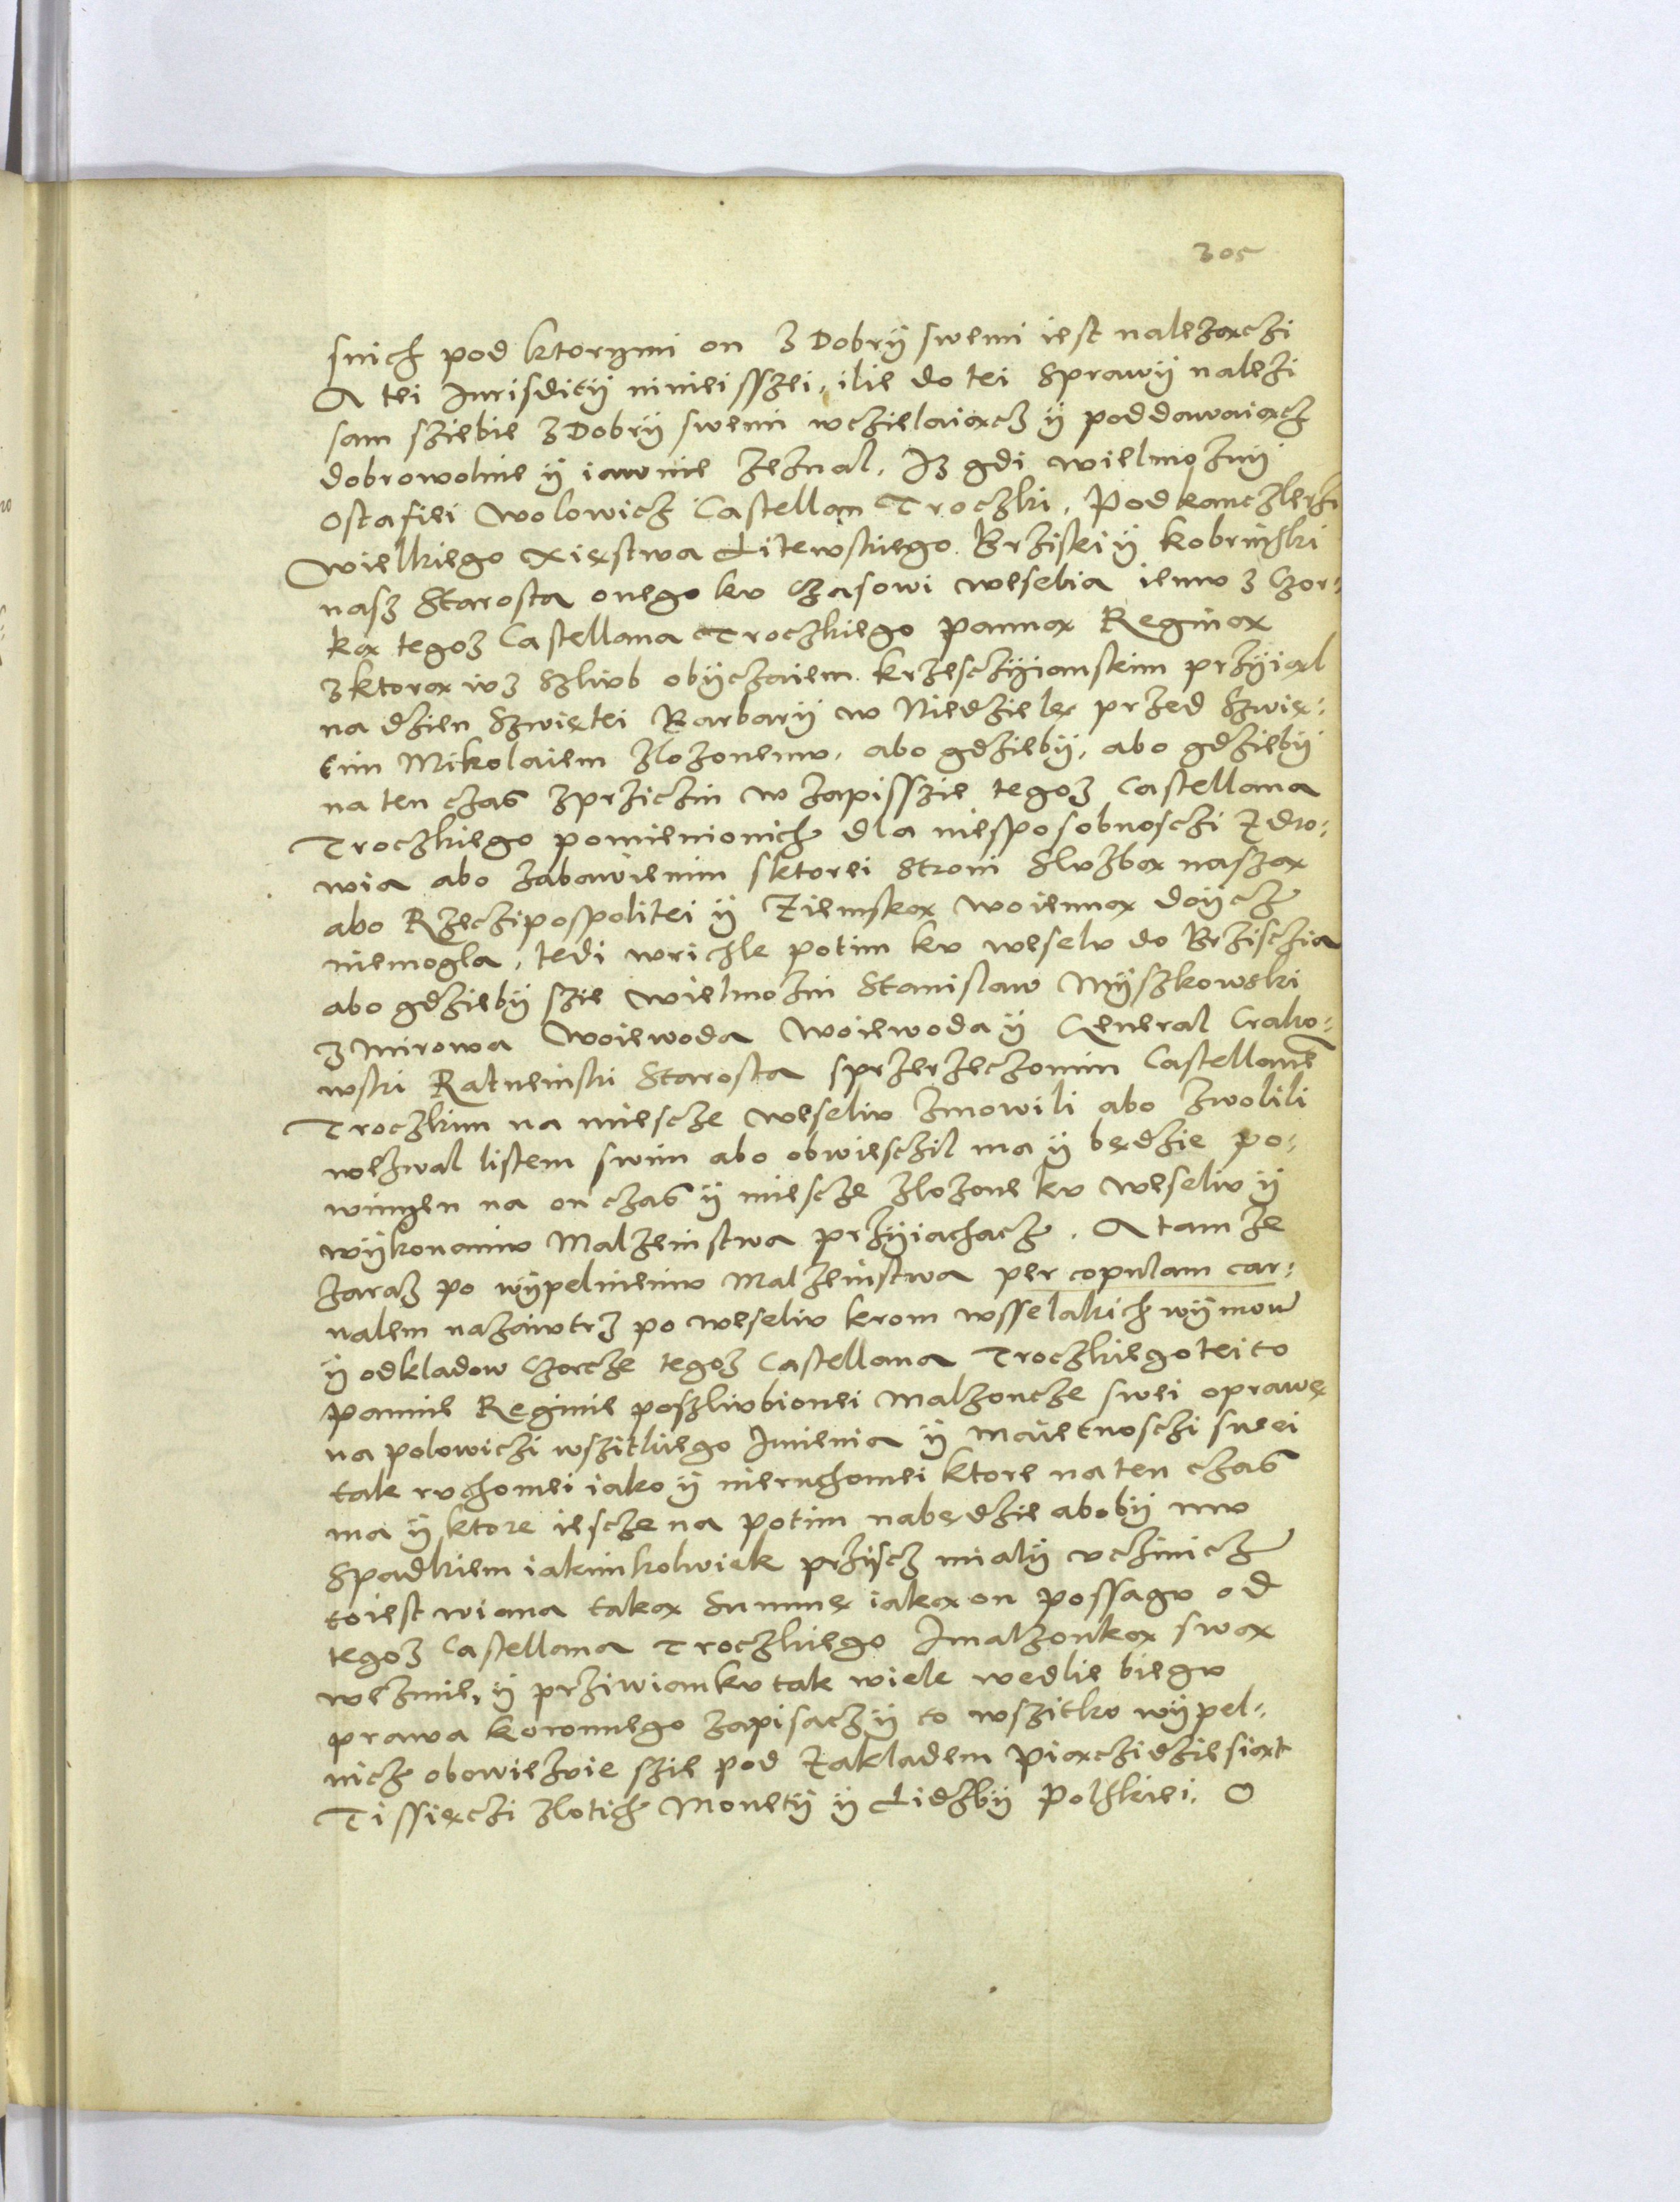 305
snich pod ktorymi on z Dobrÿ swemi iest należączi
A tei Jurisditiÿ ninieisszei, ilie do tei Sprawÿ należi
sam sziebie z Dobrÿ swemi wczielaiącz ÿ poddawaiącz
dobrowolnie ÿ iawnie zeznal. Iz gdi wielmożnÿ
Ostafiei Wolowicz Castellan Troczki, Podkanczlerzi
Wielkiego Xięstwa Litewskiego Brziski ÿ Kobrinski
nasz Starosta onego ku Czasowi weselia iemu z Czor-
ką tegoz Castellana Troczkiego panną Reginą
z ktorą iuz Szliub obÿczaiem krzesczÿianskim przÿiąl
na dzien Szwiętei Barbarÿ w Niedzielę przed Szwię-
tim Mikolaiem zlozonemu, abo gdziebÿ, abo gdziebÿ
na ten czas zprziczin w zapisszie tegoz Castellana
Troczkiego pomienionich dla niesposobnosczi zdro-
wia abo zabawienim sktorei Stroni Sluzbą naszą
abo Rzeczipospolitei ÿ Ziemską woienną doÿcz
niemogla, tedi wrichle potim ku weselu do Brzisczia
abo gdziebÿ szie wielmozni Stanislaw Mÿszkowski
z Mirowa Woiewoda Woiewoda ÿ General Crako-
wski Ratneinski Starosta sprzerzeczonim Castellane
Troczkim na miescze weseliu zmowili abo zwolili
wezwal listem swim abo obwiesczil ma ÿ będzie po-
winien na on czas ÿ miescze zlozone ku weseliu ÿ
wÿkonaniu Malzeinstwa przÿiachacz. A tamze
zaraz po wÿpelnieniu Malzeinstwa per copulam car-
nalem nazaiutrz po weseliu krom wsselakich wÿmow
ÿ odkladow Czorcze tegoz Castellana Troczkiego teito
pannie Reginie poszliubionei malzoncze swei oprawę
na polowiczi wszitkiego Imienia ÿ Maietnosczi swei
tak ruchomei iako ÿ nieruchomei ktore na ten czas
ma ÿ ktore iescze na potim nabędzie abobÿ mu
Spadkiem iakimkolwiek prziscz mialÿ uczinicz
toiest wiana taką Summę iaką on possagu od
tegoz Castellana Troczkiego Imalzonką swą
wezmie, ÿ prziwianku tak wiele wedlie biegu
prawa koronnego zapisacz ÿ to wszitko wÿpel-
nicz obowiezuie szie pod zakladem Piączidziesiąt
Tissięczi zlotich Monetÿ ÿ Lidzbÿ Polskiei. O